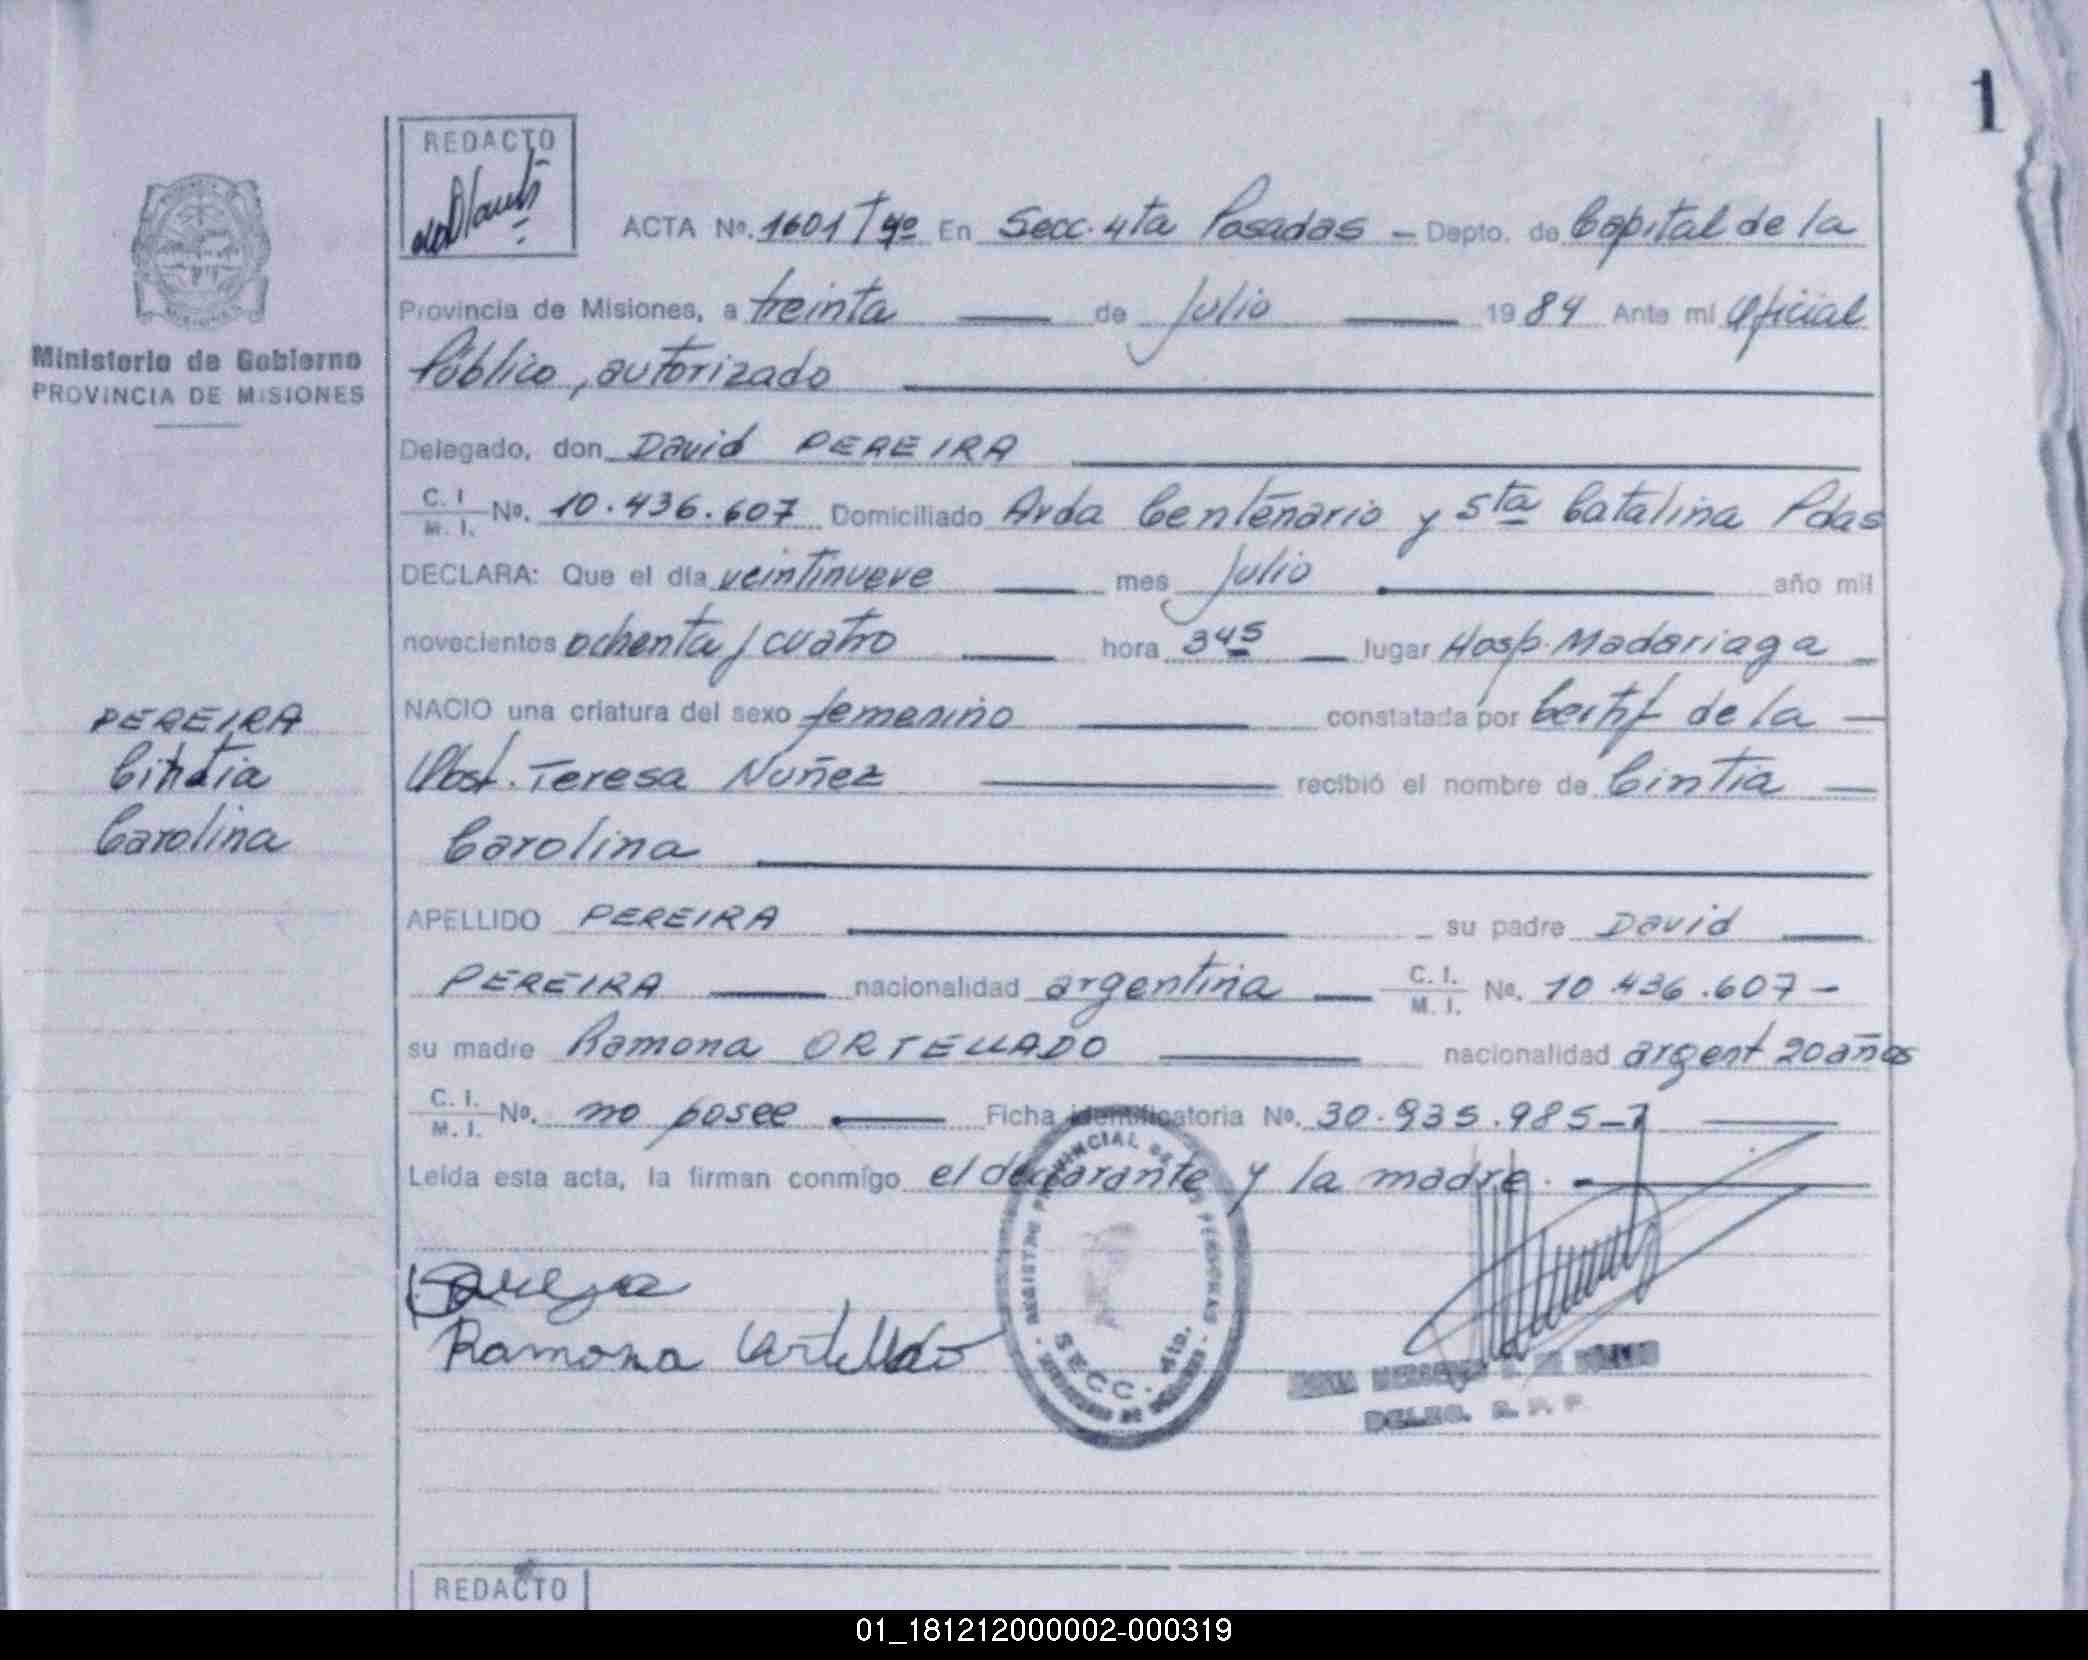 1
REDACTO
ACTA No. 1601 Tº 9º En Secc. 4ta Posadas - Depto. de Capital de la
Provincia de Misiones, a treinta de Julio 1984 Ante mi Oficial
Público, autorizado
Ministerio de Gobierno
PROVINCIA DE MISIONES
Delegado, don David PEREIRA
C. I. M. I. No. 10.436.607 Domiciliado Avda Centenario y Sta Catalina Pdas
DECLARA: Que el día veintinueve mes Julio año mil
novecientos ochenta y cuatro hora 3 45 lugar Hosp. Madariaga
NACIO una criatura del sexo femenino constatada por Certif de la
Obst. Teresa Nuñez recibió el nombre de Cintia
Carolina
PEREIRA
Cintia
Carolina
APELLIDO PEREIRA su padre David
PEREIRA nacionalidad argentina C. I. M. I. No. 10.436.607-
su madre Ramona ORTELLADO nacionalidad argent 20 años
C. I. M. I. No. no posee Ficha identificatoria No. 30.935.985-
Leída esta acta, la firman conmigo el declarante y la madre.
REGISTRO PROVINCIAL DE LAS PERSONAS
SECC. 4ta.
Ramona Ortellado
DELEG. R. P. P.
REDACTO
01_181212000002-000319